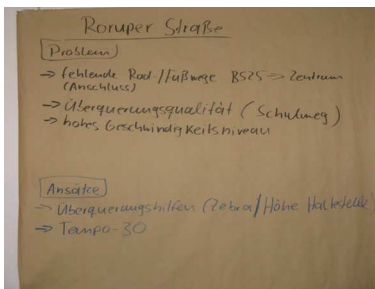 Roruper Straße
Problem
-> fehlende Rad-/Fußwege B525 -> Zentrum
(Anschluss)
-> Überquerungsqualität (Schulweg)
-> hohes Geschwindigkeitsniveau
Ansätze
-> Überquerungshilfen (Zebra/Höhe Haltestelle
-> Tempo-30